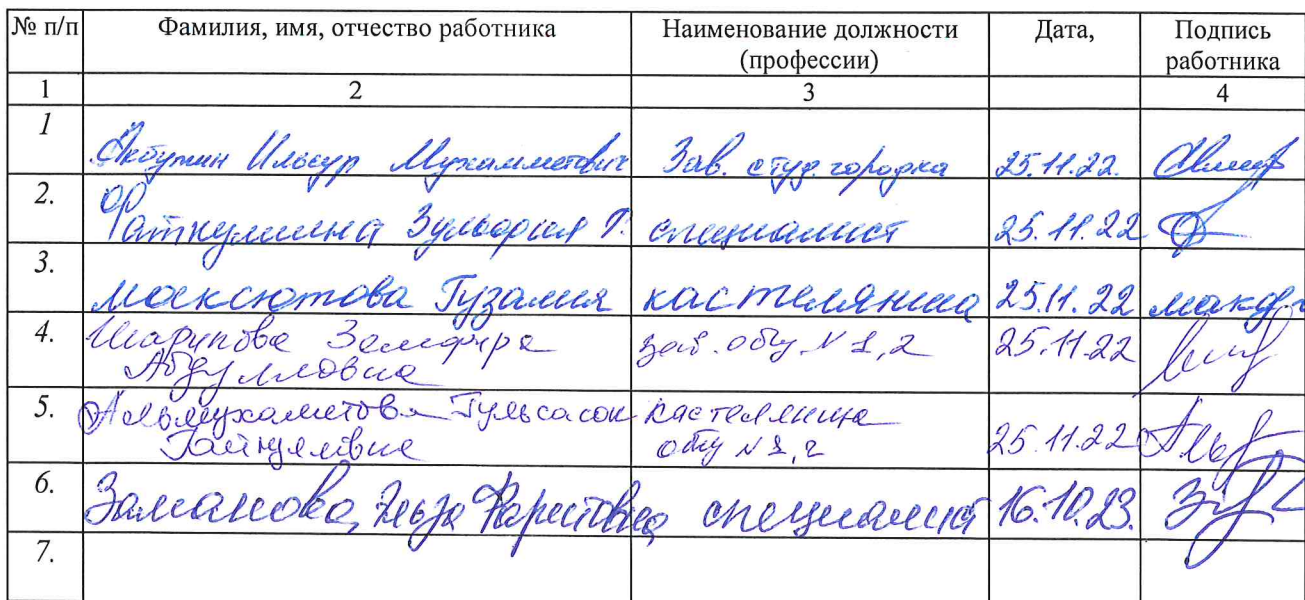 № п/п Фамилия, имя, отчество работника Наименование должности (профессии) Дата, Подпись работника
1 2 3 4
1 Акбутин Ильсур Мухамметович Зав. студ. городка 25.11.22.
2. Фаткуллина Зульфия Г. специалист 25.11.22
3. Максютова Гузалия кастелянша 25.11.22
4. Шарипова Земфира зав. общ № 1,2 25.11.22
Абдулловна
5. Альмухаметова Гульсасак кастелянша
общ № 1,2 25.11.22
6. Заманова Эльза Фаритовна специалист 16.10.23.
7.